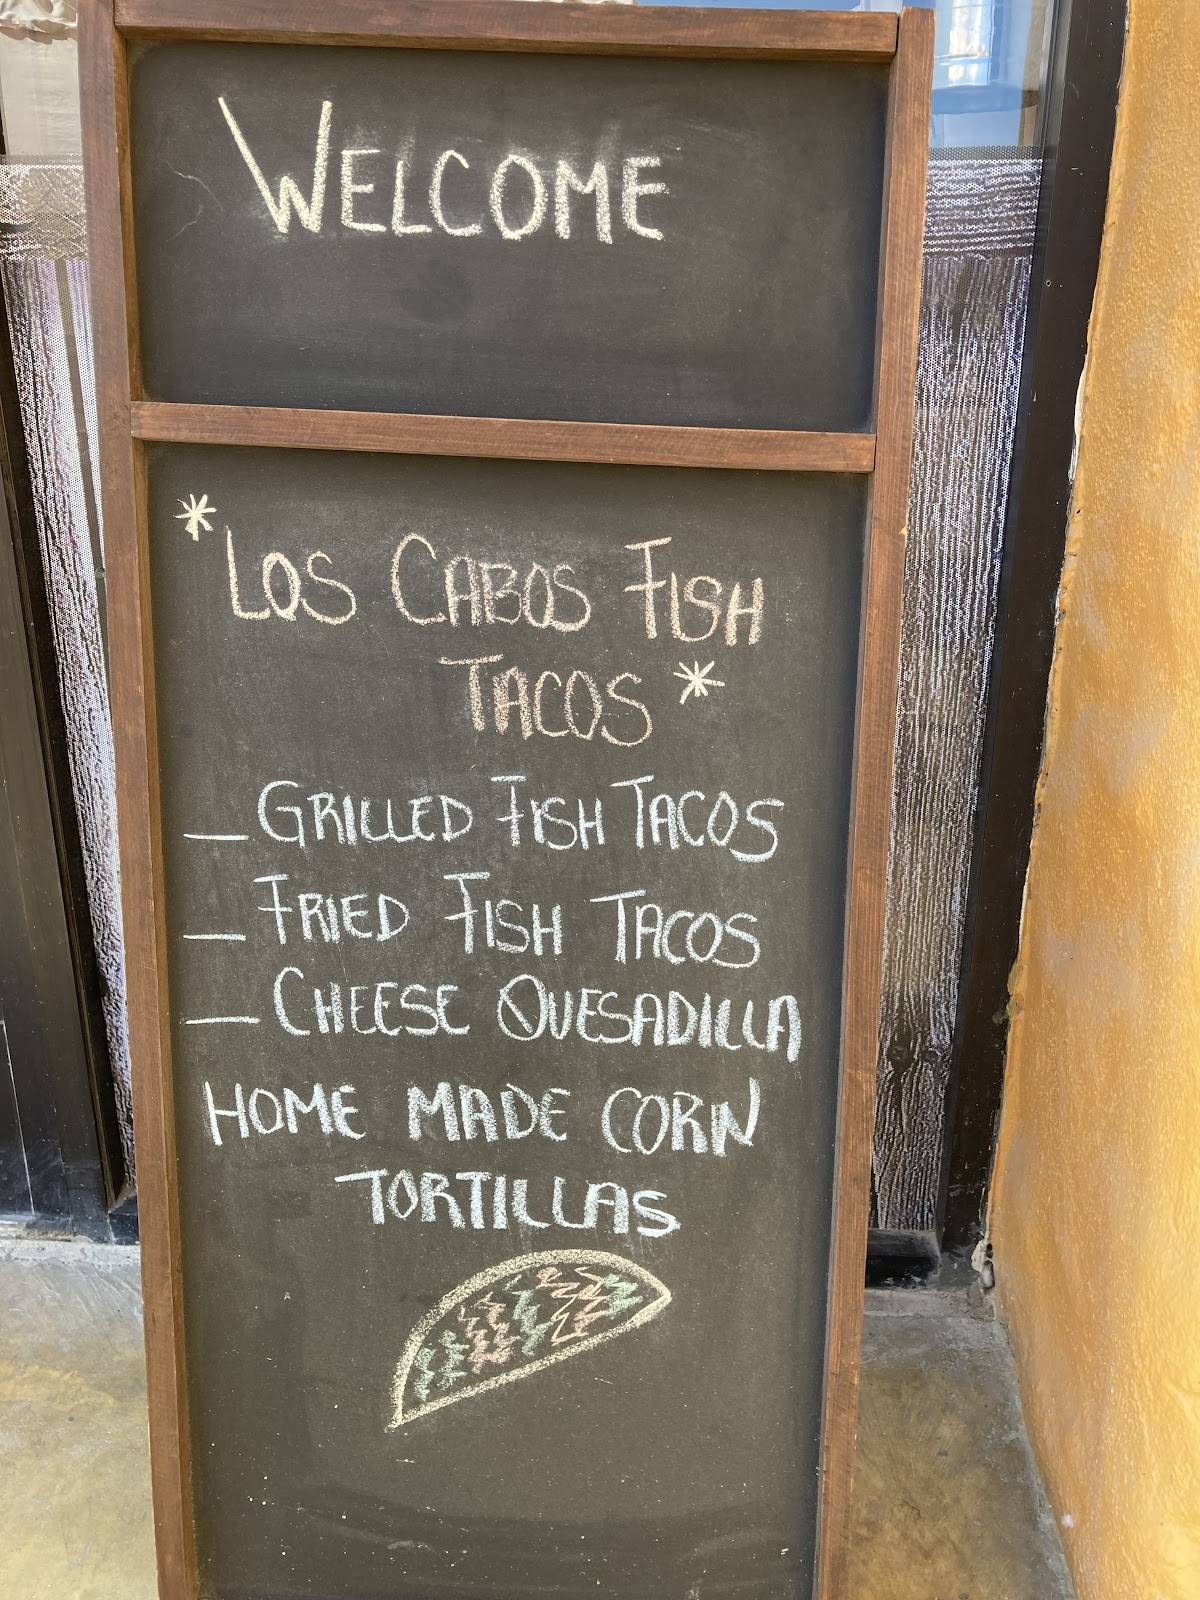 WELCOME
*LOS CABOS FISH
TACOS*
_ GRILLED FISH TACOS
_ FRIED FISH TACOS
_ CHEESE QUESADILLA
HOME MADE CORN
TORTILLAS